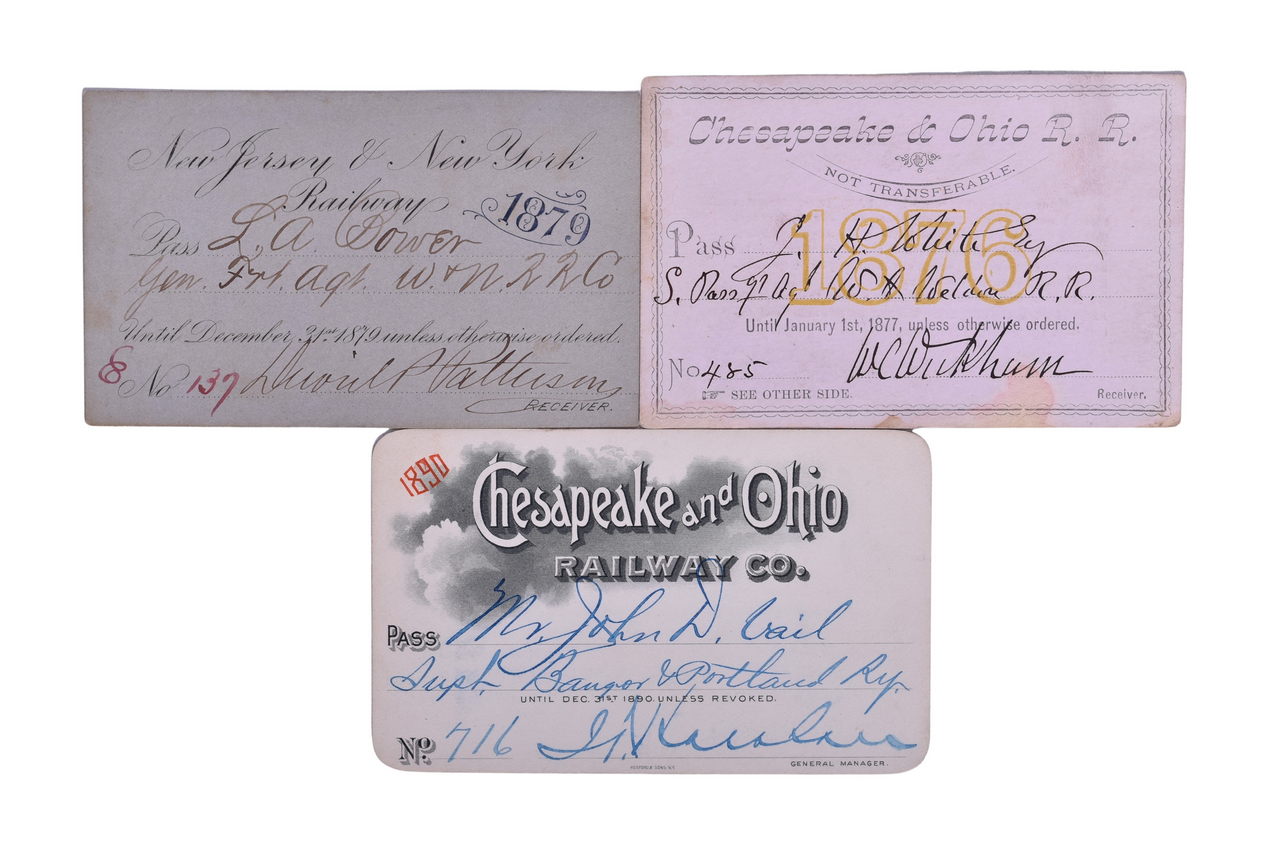 New Jersey & New York
Railway
1879
Pass L. A. Bower
Gen. Frt. Agt. W. & N. R R Co
Until December, 31st 1879 unless otherwise ordered.
E No 137
RECEIVER.
Chesapeake & Ohio R. R.
NOT TRANSFERABLE.
1876
Pass J. H. White Esq
S. Pass Agt W. & Weldon R. R.
Until January 1st, 1877, unless otherwise ordered.
No 485 WC Wickham
SEE OTHER SIDE. Receiver.
1890
Chesapeake and Ohio
RAILWAY CO.
PASS Mr. John D. Vail
Supt. Bangor & Portland Ry.
UNTIL DEC. 31ST 1890. UNLESS REVOKED.
No. 716
GENERAL MANAGER.